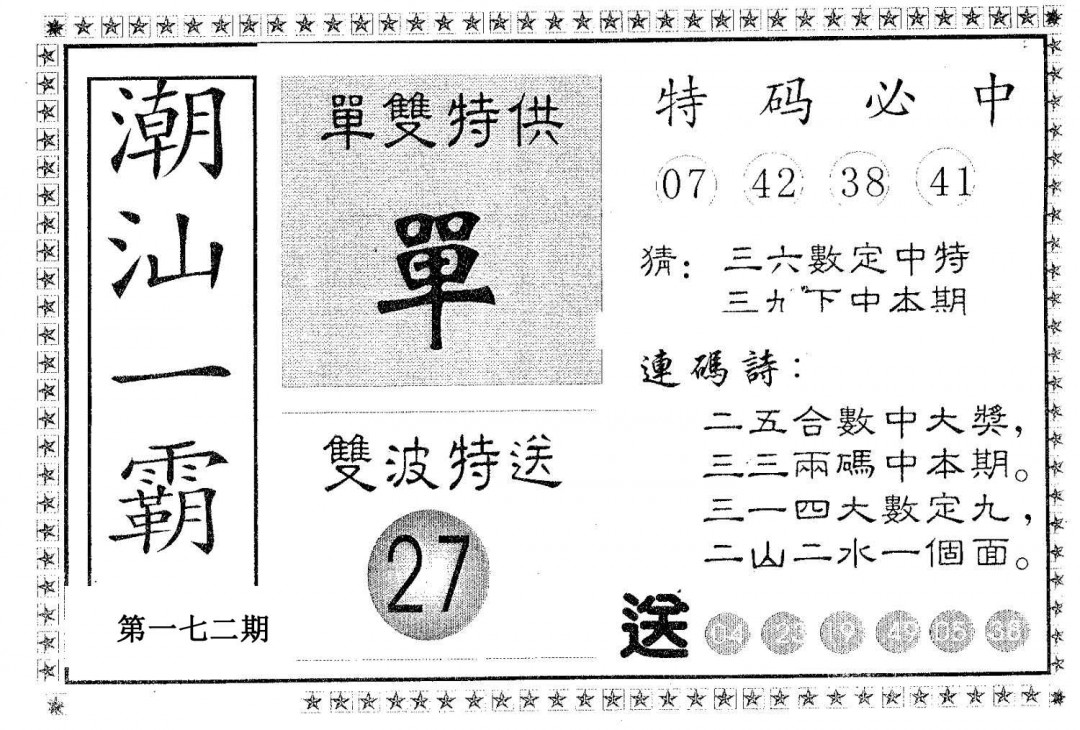 潮汕一霸
第一七二期
單雙特供
單
雙波特送
27
特码必中
07 42 38 41
猜：三六數定中特
三九下中本期
連碼詩：
二五合數中大獎，
三三兩碼中本期。
三一四大數定九，
二山二水一個面。
送 04 23 19 49 05 38